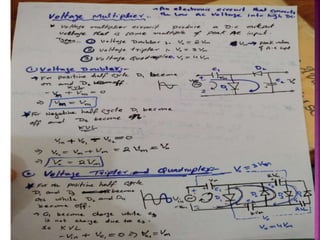 Voltage Multiplier:- An electronic circuit that converts
the low AC voltage into high DC.
Voltage multiplier circuit produce a D.C output
voltage that is some multiple of peak AC input
Types:- ① Voltage Doubler :- V₀ = 2Vm
② Voltage tripler :- V₀ = 3Vm
③ Voltage Quadrupler, V₀ = 4Vm
① Voltage Doubler:-
→ For positive half cycle D₁ become
on and D₂ become off
KVL
-Vin + Vm = 0
⇒ Vin = Vm
For Negative half cycle D₁ become
off and D₂ become on
KVL
⇒ V₀ = Vin + Vm = 2Vm = V₀
⇒ V₀ = 2Vm
② Voltage Tripler and Quadrupler
For the positive half cycle
D₁ and D₃ become
on while D₂ and D₄
become off.
→ C₁ become charge while C₂
is not charge due to C₂.
So KVL
-Vin + Vc₁ = 0 ⇒ Vc₁ = Vm
V₀ = 3Vm
V₀ = 4Vm